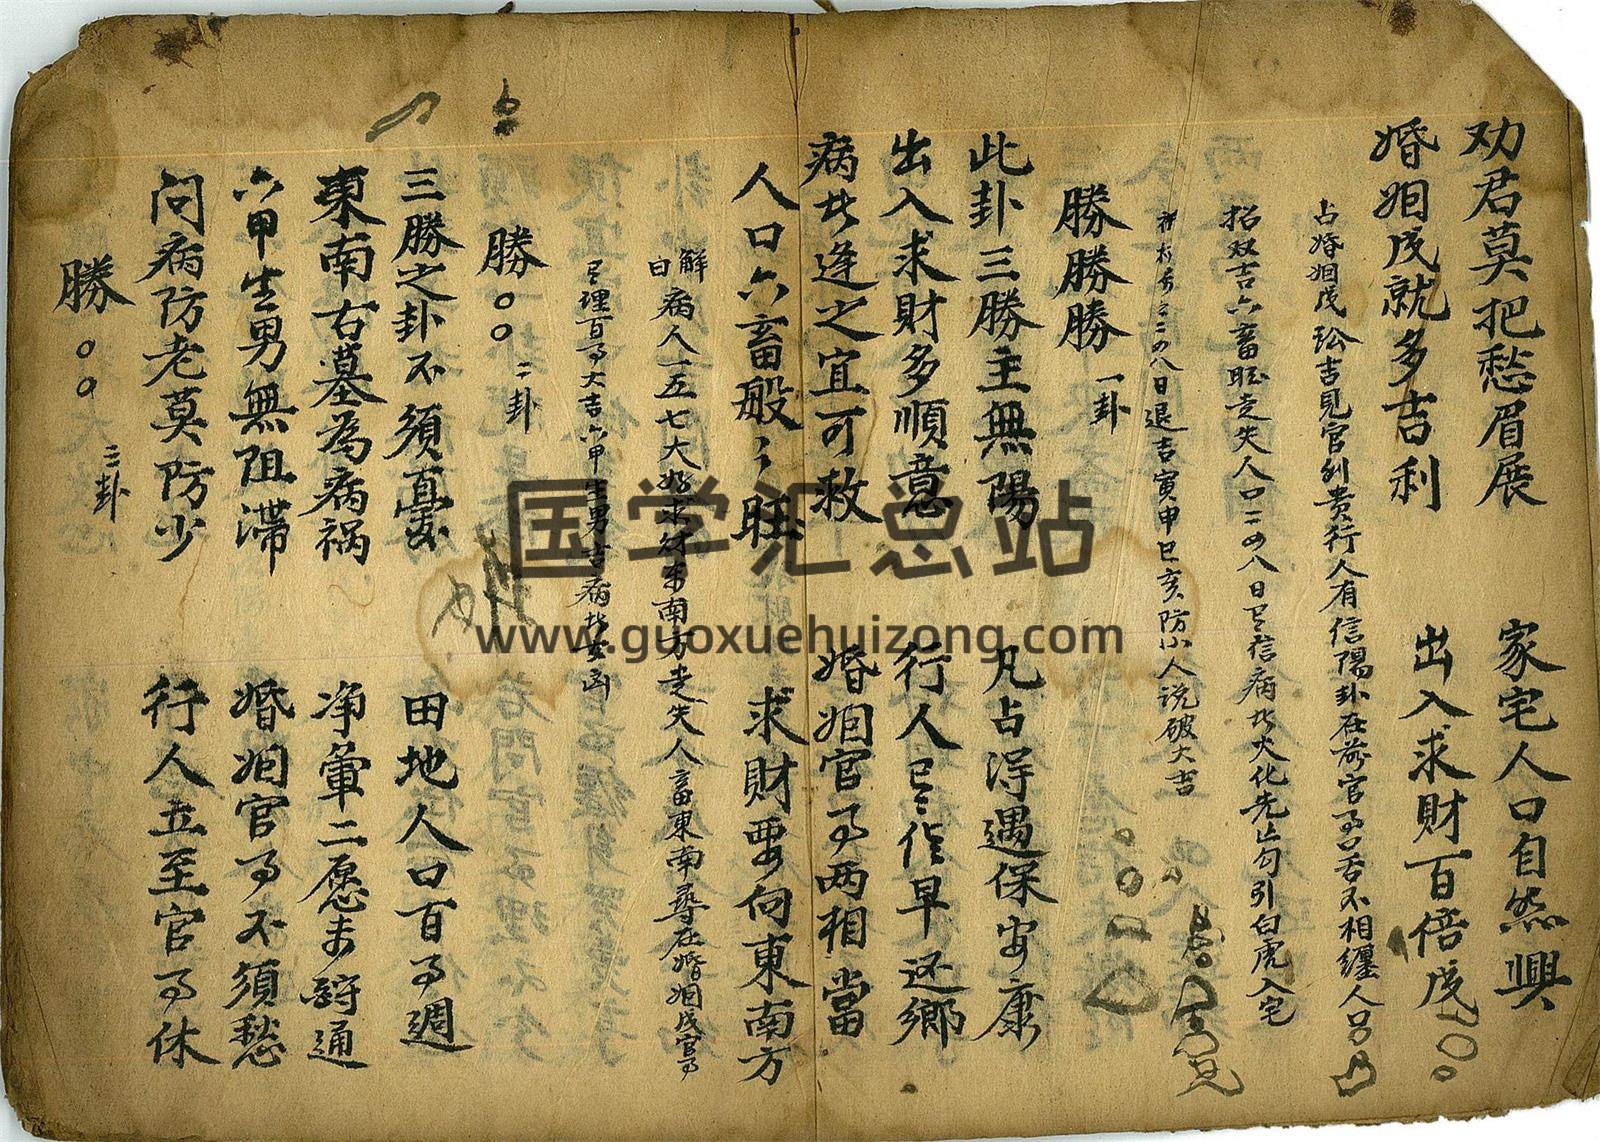 劝君莫把愁眉展 家宅人口自然興
婚姻成就多吉利 出入求財百倍成
占婚姻成 訟吉見官到貴行人有信陽卦在前官事口舌不相纏人口
招双吉六畜旺走失人口二四八日有信病者火化先亡勾引白虎入宅
二四八日退吉寅申巳亥防小人说破大吉
勝勝勝 一卦
此卦三勝主無陽 凡占得遇保安康
出入求財多順意 行人已作早还鄉
病者逢之宜可救 婚姻官事两相當
人口六畜般々旺 求財要向東南方
解曰 病人一五七大好求财東南方走失人畜東南尋在婚姻成官事
有理百事大吉六甲生男吉病者安
勝〇〇 二卦
三勝之卦不須憂 田地人口百事週
東南右墓為病祸 净 二愿未酧通
六甲生男無阻滞 婚姻官事不須愁
问病防老莫防少 行人立至官事休
勝〇〇 三卦
国学汇总站
www.guoxuehuizong.com